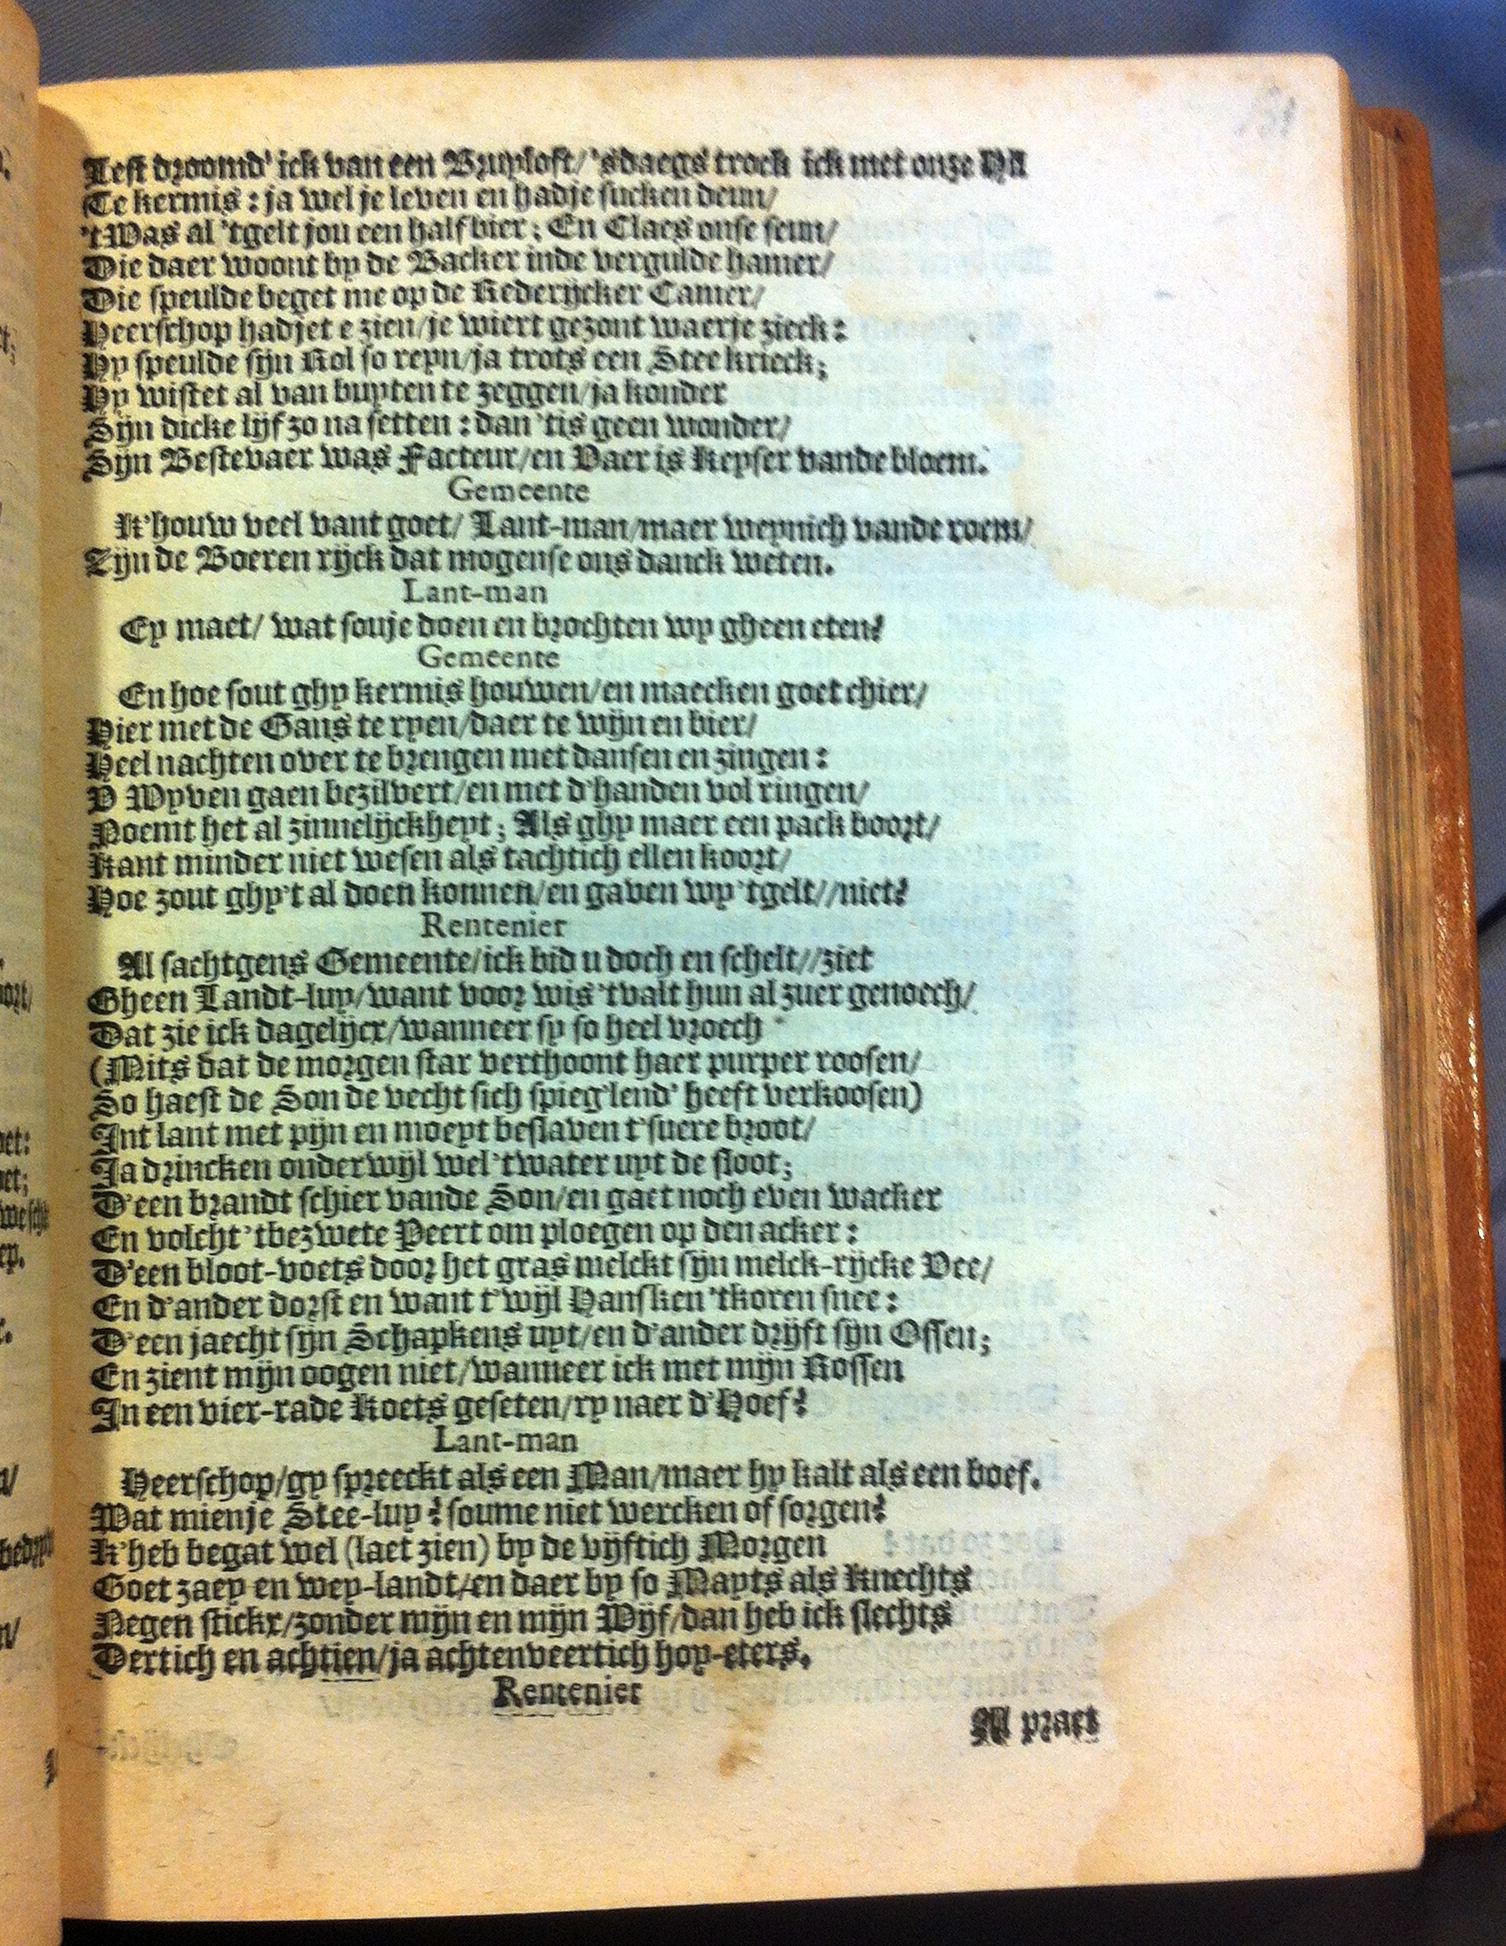 Lest droomd' ick van een Bruyloft/ 'sdaegs trock ick met onze
Te kermis : ja wel je leven en hadje sucken deun/
'tWas al 'tgelt jou een half bier ; En Claes onse seun/
Die daer woont by de Backer inde vergulde hamer/
Die speulde beget me op de Rederijcker Camer/
Heerschop hadjet e zien/je wiert gezont waerje zieck :
Hy speulde sijn Rol so reyn/ja trots een Stee krieck ;
Hy wistet al van buyten te zeggen/ja konder
Sijn dicke lijf zo na setten : dan 'tis geen wonder/
Sijn Bestevaer was Facteur/en Vaer is Keyser vande bloem.
Gemeente
K'houw veel vant goet/ Lant-man/maer weynich vande roem/
Zijn de Boeren rijck dat mogense ons danck weten.
Lant-man
Ey maet/ wat souje doen en brochten wy gheen eten?
Gemeente
En hoe sout ghy kermis houwen/en maecken goet chier/
Hier met de Gans te ryen/daer te wijn en bier/
Heel nachten over te brengen met dansen en zingen :
V Wyven gaen bezilvert/en met d'handen vol ringen/
Noemt het al zinnelijckheyt ; Als ghy maer een pack boort/
Kant minder niet wesen als tachtich ellen koort/
Hoe zout ghy't al doen konnen/en gaven wy 'tgelt//niet?
Rentenier
Al sachtgens Gemeente/ick bid u doch en schelt//ziet
Gheen Landt-luy/want voor wis 'tvalt hun al zuer genoech/
Dat zie ick dagelijcx/wanneer sy so heel vroech
(Mits dat de morgen star verthoont haer purper roosen/
So haest de Son de vecht sich spieg'lend' heeft verkoosen)
Int lant met pijn en moeyt beslaven t'suere broot/
Ja drincken onderwijl wel 'twater uyt de sloot ;
D'een brandt schier vande Son/en gaet noch even wacker
En volcht 'tbezwete Peert om ploegen op den acker :
D'een bloot-voets door het gras melckt sijn melck-rijcke Vee/
En d'ander dorst en want t'wijl Hansken 'tkoren snee :
D'een jaecht sijn Schapkens uyt/en d'ander drijft sijn Ossen ;
En zient mijn oogen niet/wanneer ick met mijn Rossen
In een vier-rade Koets geseten/ry naer d'Hoef?
Lant-man
Heerschop/gy spreeckt als een Man/maer hy kalt als een boef.
Wat mienje Stee-luy ? soume niet wercken of sorgen?
K'heb begat wel (laet zien) by de vijftich Morgen
Goet zaey en wey-landt/en daer by so Mayts als Knechts
Negen stickx/zonder mijn en mijn Wijf/dan heb ick slechts
Dertich en achtien/ja achtenveertich hoy-eters.
Rentenier
Al praet